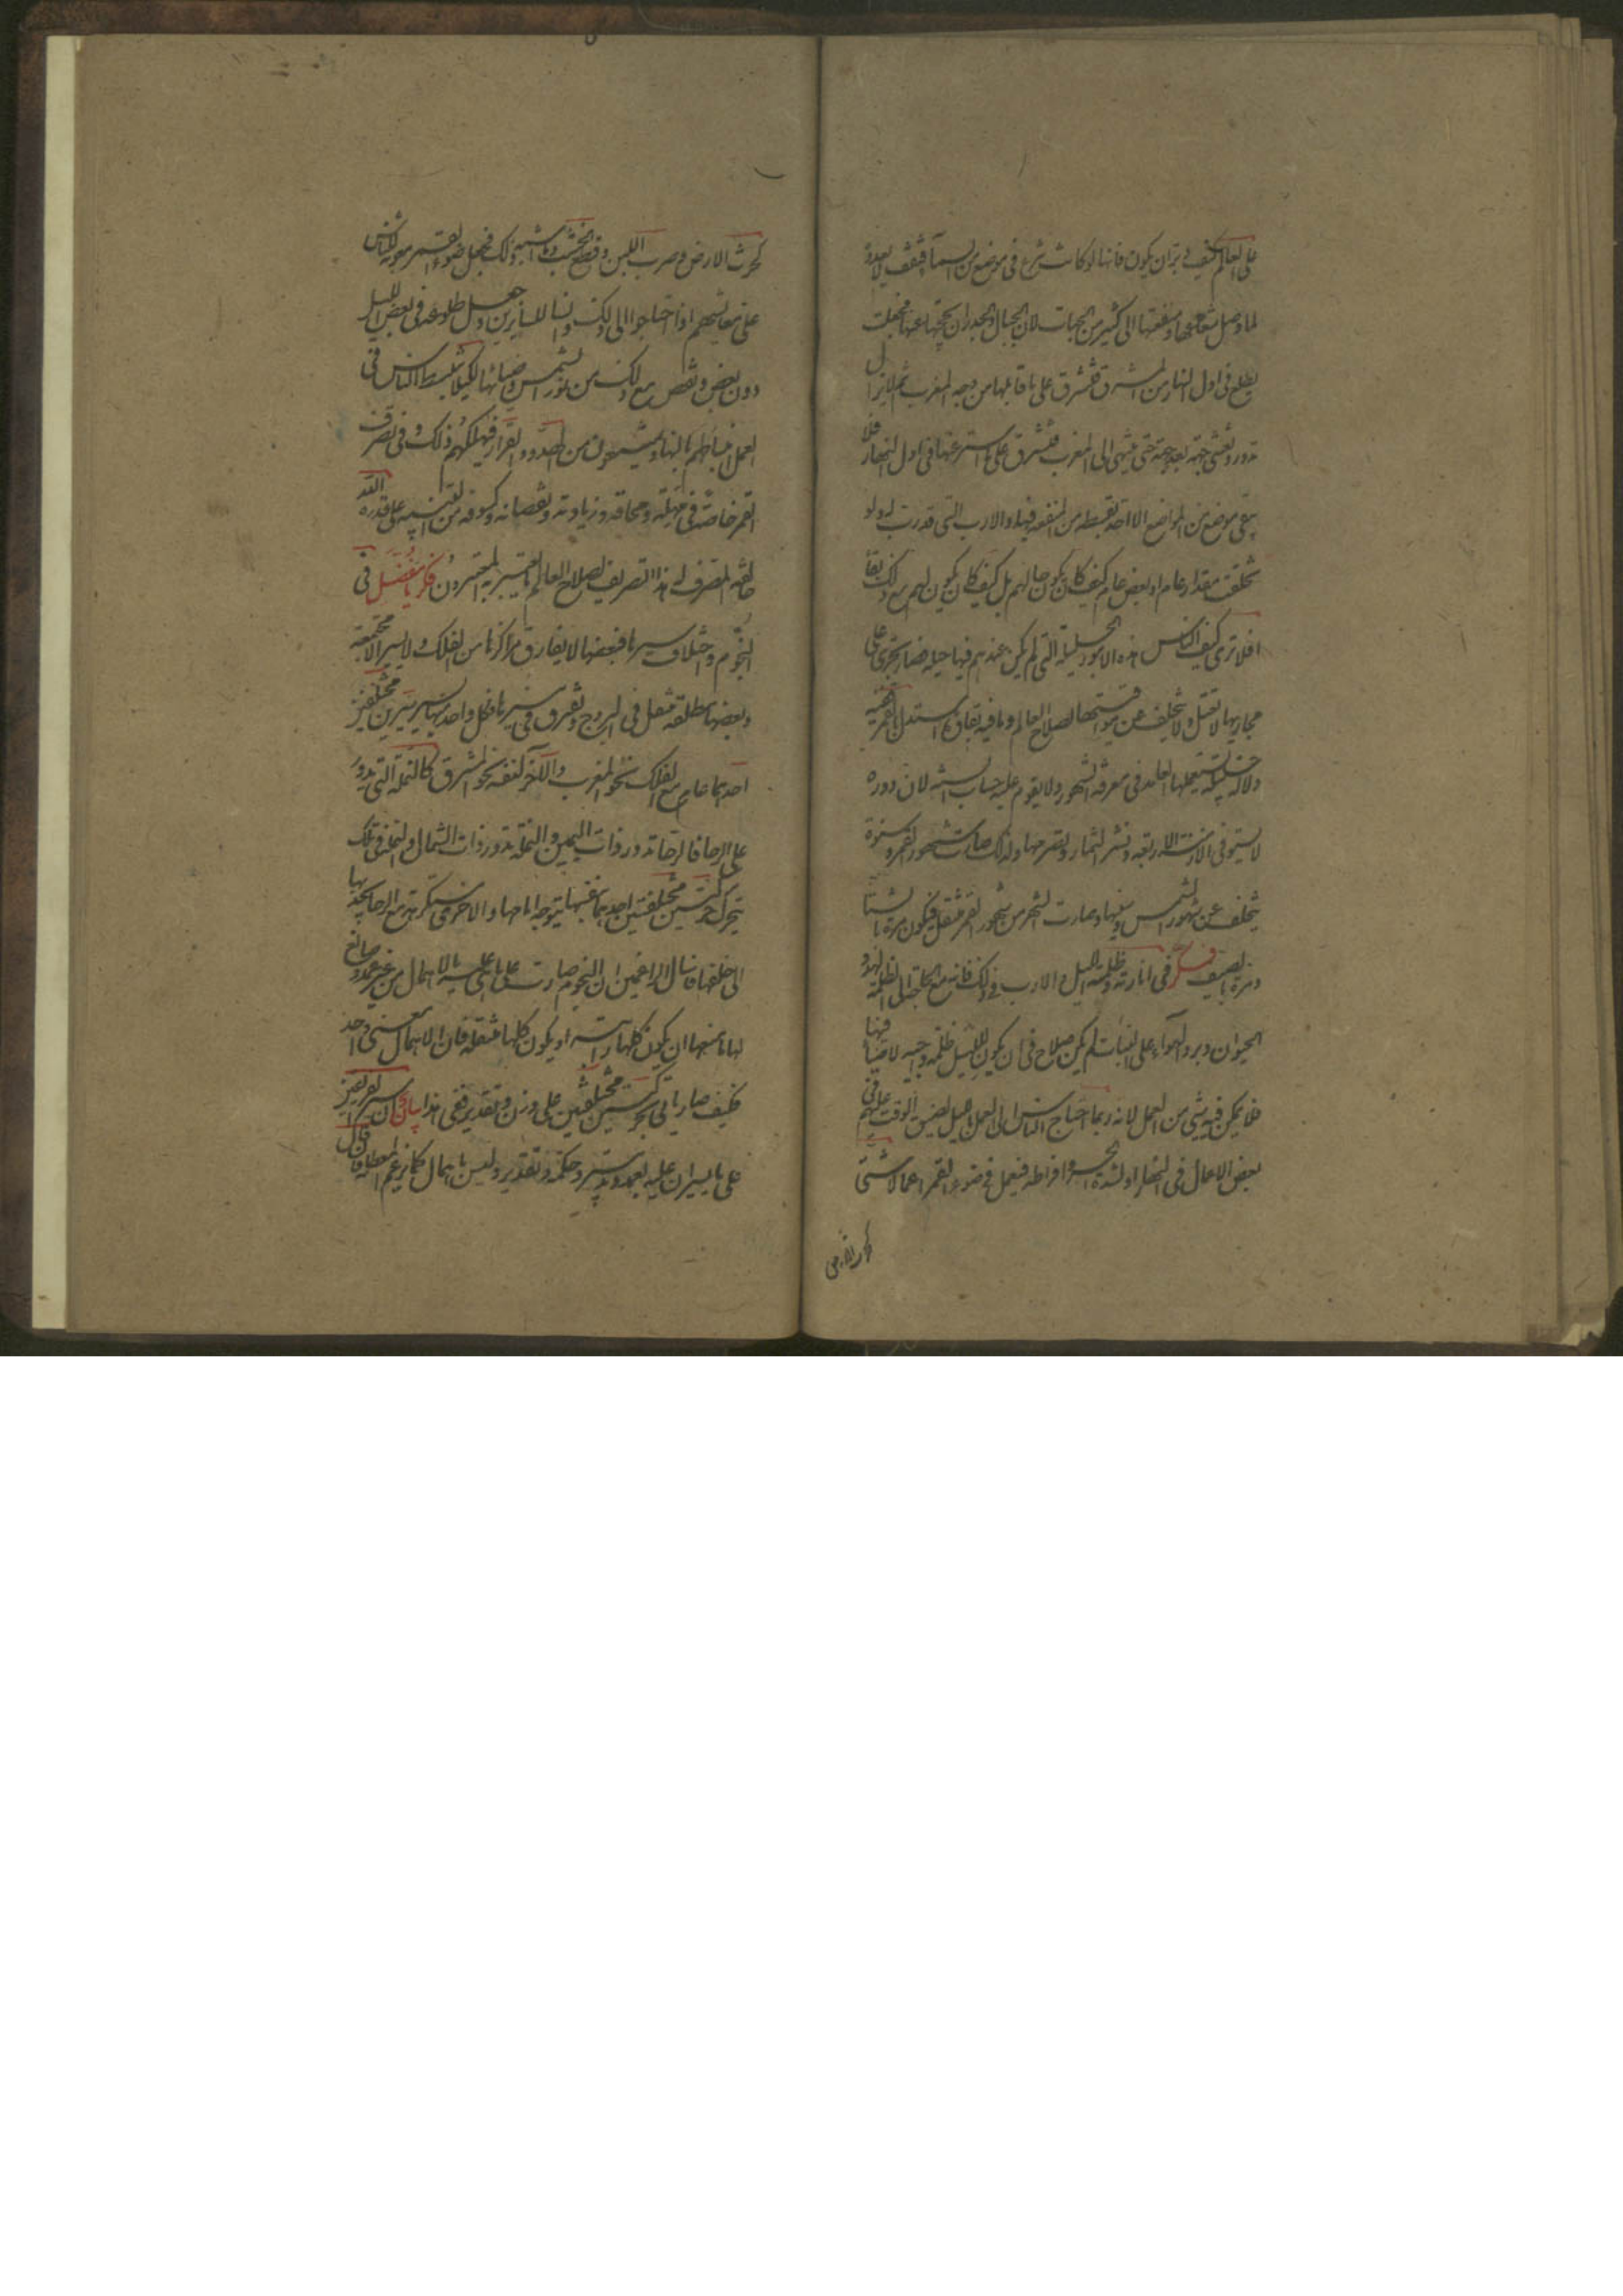 على العالم كيف دبر ان يكون فانها لو كانت تبزغ فى موضع من السماء فتقف لا تعدوه
لما وصل شعاعها ومنفعتها الى كثير من الجهات لان الجبال والجدران تحجبها عنها فجعلت
تطلع فى اول النهار من المشرق فتشرق على ما قابلها من وجه المغرب ثم لا يزال
تدور وتغشى جهة بعد جهة حتى تنتهى الى المغرب فتشرق على ما استتر عنها فى اول النهار فلا
يبقى موضع من المواضع الا اخذ بقسطه من المنفعة فيها والارب التى قدرت له ولو
تخلفت مقدار عام او بعض عام كيف كان يكون حالهم بل كيف كان يكون لهم مع ذلك بقاء
افلا ترى كيف الناس هذه الامور الجليلة التى لم يكن عندهم فيها حيلة فصار تجرى على
مجاريها لا تعتل ولا تتخلف عن مواقيتها لصلاح العالم وما فيه بقاؤه استدل بالقمر ففيه
دلالة جليلة تستعملها العامة فى معرفة الشهور ولا يقوم عليه حساب السنة لان دوره
لا يستوفى الازمنة الاربعة ونشو الثمار وتصرمها ولذلك صارت شهور القمر وسنوه
تتخلف عن شهور الشمس وسنيها وصارت الشهر من شهور القمر تنتقل فيكون مرة بالشتاء
ومرة بالصيف فكر فى انارته فى ظلمة الليل والارب فى ذلك فانه مع الحاجة الى الظلمة لهدو
الحيوان وبرد الهواء على النبات لم يكن صلاح فى ان يكون الليل ظلمة داجية لا ضياء فيها
فلا يمكن فيه شىء من العمل لانه ربما احتاج الناس الى العمل بالليل لضيق الوقت عليهم فى
بعض الاعمال فى النهار او لشدة الحر وافراطه فيعمل فى ضوء القمر اعمالا شتى
كحرث الارض
كحرث الارض وضرب اللبن وقطع الخشب وما اشبه ذلك فجعل ضوء القمر معونة للناس
على معايشهم اذا احتاجوا الى ذلك وانسا للسائرين وجعل طلوعه فى بعض الليل
دون بعض ونقص مع ذلك من نور الشمس وضيائها لكيلا تنبسط الناس فى
العمل انبساطهم بالنهار ويمتنعون من الهدو والقرار فيهلكهم ذلك وفى تصرف
القمر خاصة فى تهلله ومحاقه وزيادته ونقصانه وكسوفه من التنبيه على قدرة الله
خالقه المصرف له هذا التصريف لصلاح العالم ما يعتبر به المعتبرون فكر يا مفضل فى
النجوم واختلاف سيرها فبعضها لا يفارق مراكزها من الفلك ولا يسير الا مجتمعة
وبعضها مطلقة تنتقل فى البروج وتفترق فى سيرها فكل واحد منها يسير سيرين مختلفين
احدهما عام مع الفلك نحو المغرب والآخر لنفسه نحو المشرق كالنملة التى تدور
على الرحا فالرحا تدور ذات اليمين والنملة تدور ذات الشمال والنملة فى تلك
تتحرك حركتين مختلفتين احدهما بنفسها يتوجه امامها والاخرى مستكرهة مع الرحا تجذبها
الى خلفها فاسأل الزاعمين ان النجوم صارت على ما هى عليه بالاهمال من غير عمد ولا صانع
لها ما منعها ان يكون كلها راتبة او يكون كلها منتقلة فان الاهمال معنى واحد
فكيف صار ياتى بحركتين مختلفتين على وزن وتقدير ففى هذا بيان ان سير الفريقين
على ما يسيران عليه بعمد وتدبير وحكمة وتقدير وليس باهمال كما تزعم المعطلة فان قال